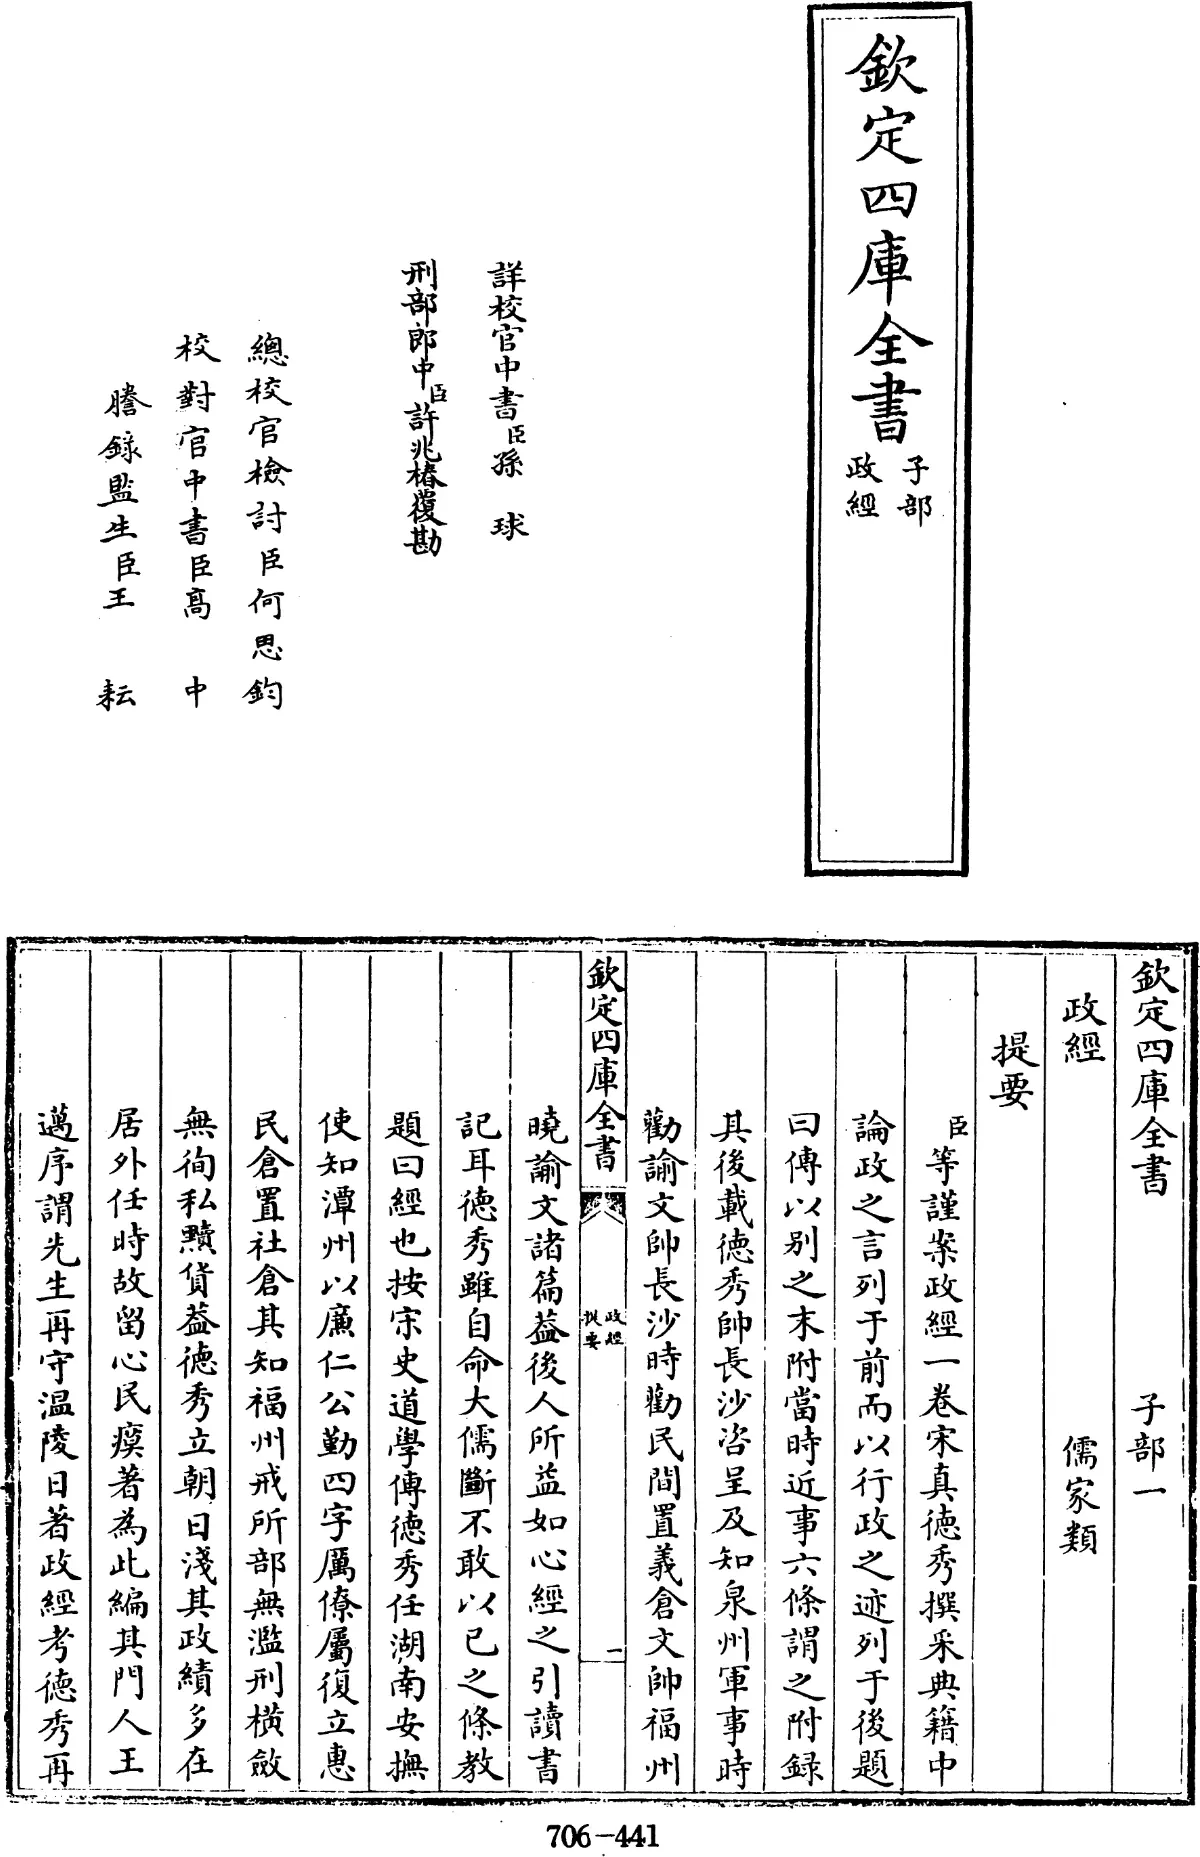 欽定四庫全書 子部 政經
詳校官中書臣孫 球
刑部郎中臣許兆椿覆勘
總校官檢討臣何思鈞
校對官中書臣高 中
謄錄監生臣王 耘
欽定四庫全書 子部一
政經 儒家類
提要
臣等謹案政經一卷宋真德秀撰采典籍中
論政之言列于前而以行政之迹列于後題
曰傳以别之末附當時近事六條謂之附録
其後載德秀帥長沙咨呈及知泉州軍事時
勸諭文帥長沙時勸民間置義倉文帥福州
欽定四庫全書 政經 提要 一
曉諭文諸篇葢後人所益如心經之引讀書
記耳徳秀雖自命大儒斷不敢以已之條教
題曰經也按宋史道學傳德秀任湖南安撫
使知潭州以廉仁公勤四字厲僚屬復立惠
民倉置社倉其知福州戒所部無濫刑横斂
無徇私黷貨葢徳秀立朝日淺其政績多在
居外任時故留心民瘼著為此編其門人王
邁序謂先生再守温陵日著政經考德秀再
706-441